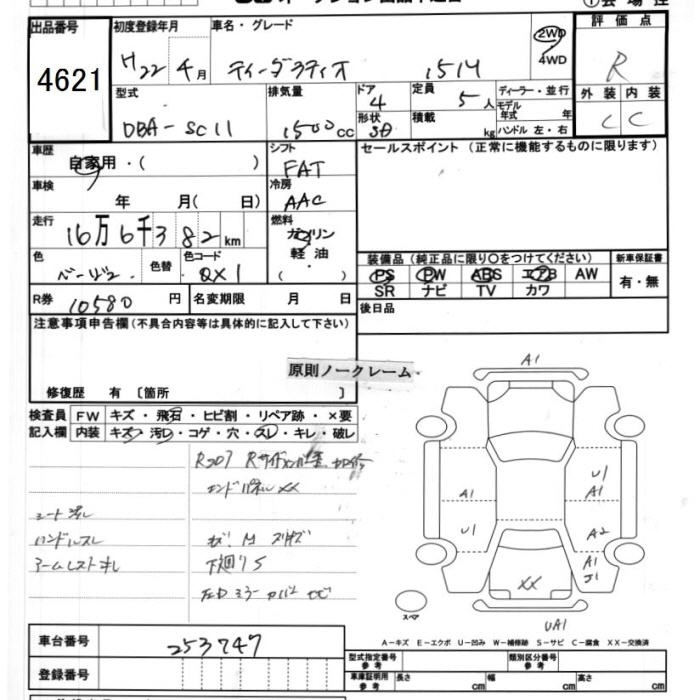 出品番号
4621
初度登録年月
H22 4月
車名・グレード
ティーダラティオ 15M
2WD
4WD
評価点
R
外装 内装
C C
型式
DBA-SC11
排気量
1500cc
ドア
4
形状
SD
定員
5人
積載
kg
ディーラー・並行
モデル年式 年
ハンドル 左・右
車歴
自家用・( )
車検
年 月( 日)
走行
16万6千382km
色
ベージュ
色替
色コード
QX1
シフト
FAT
冷房
AAC
燃料
ガソリン
軽油
( )
セールスポイント(正常に機能するものに限ります)
装備品(純正品に限り○をつけてください)
PS PW ABS エアB AW
SR ナビ TV カワ
新車保証書
有・無
R券 10580円
名変期限 月 日
後日品
注意事項申告欄(不具合内容等は具体的に記入して下さい)
原則ノークレーム
修復歴 有〔箇所 〕
検査員記入欄
FW キズ・飛石・ヒビ割・リペア跡・×要
内装 キズ・汚レ・コゲ・穴・スレ・キレ・破レ
エンドパネルXX
シート汚レ
ハンドルスレ
下廻りS
A1
U1
A1
A1
U1
A2
A1
J1
XX
UA1
スペア
A-キズ E-エクボ U-凹み W-補修跡 S-サビ C-腐食 XX-交換済
車台番号
253747
登録番号
型式指定番号
類別区分番号
車庫証明用参考
長さ cm
幅 cm
高さ cm